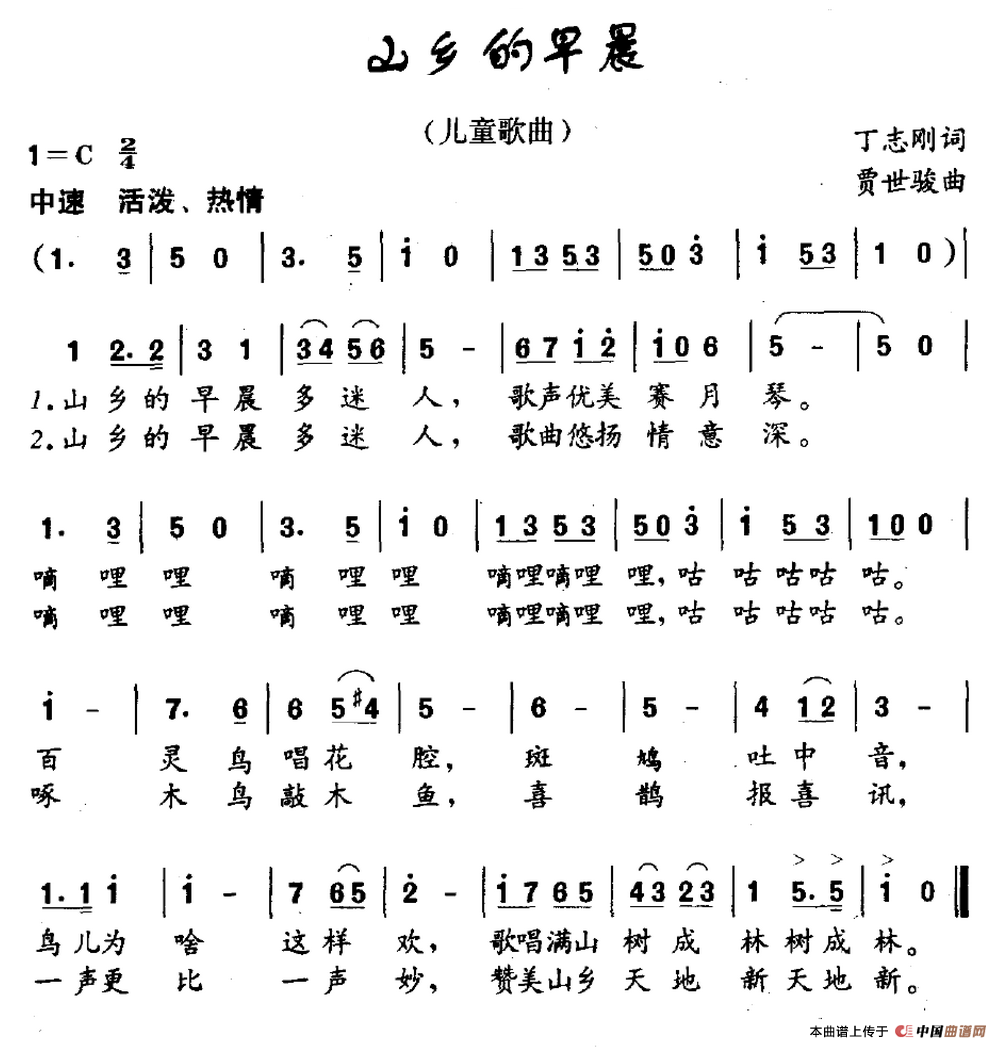 山乡的早晨
（儿童歌曲）
1=C 2/4
丁志刚词
中速 活泼、热情
贾世骏曲
(1. 3 | 5 0 | 3. 5 | i 0 | 1 3 5 3 | 5 0 3̇ | i 5 3 | 1 0 )|
1 2. 2 | 3 1 | 3 4 5 6 | 5 - | 6 7 i 2̇ | i 0 6 | 5 - | 5 0 |
1.山乡的早晨多迷人，歌声优美赛月琴。
2.山乡的早晨多迷人，歌曲悠扬情意深。
1. 3 | 5 0 | 3. 5 | i 0 | 1 3 5 3 | 5 0 3̇ | i 5 3 | 1 0 0 |
嘀哩哩 嘀哩哩 嘀哩嘀哩哩，咕咕咕咕咕。
嘀哩哩 嘀哩哩 嘀哩嘀哩哩，咕咕咕咕咕。
i - | 7. 6 | 6 5 #4 | 5 - | 6 - | 5 - | 4 1 2 | 3 - |
百灵鸟唱花腔，斑鸠吐中音，
啄木鸟敲木鱼，喜鹊报喜讯，
1. 1 i | i - | 7 6 5 | 2̇ - | i 7 6 5 | 4 3 2 3 | 1 5. 5 | i 0 ‖
鸟儿为啥这样欢，歌唱满山树成林树成林。
一声更比一声妙，赞美山乡天地新天地新。
本曲谱上传于 中国曲谱网